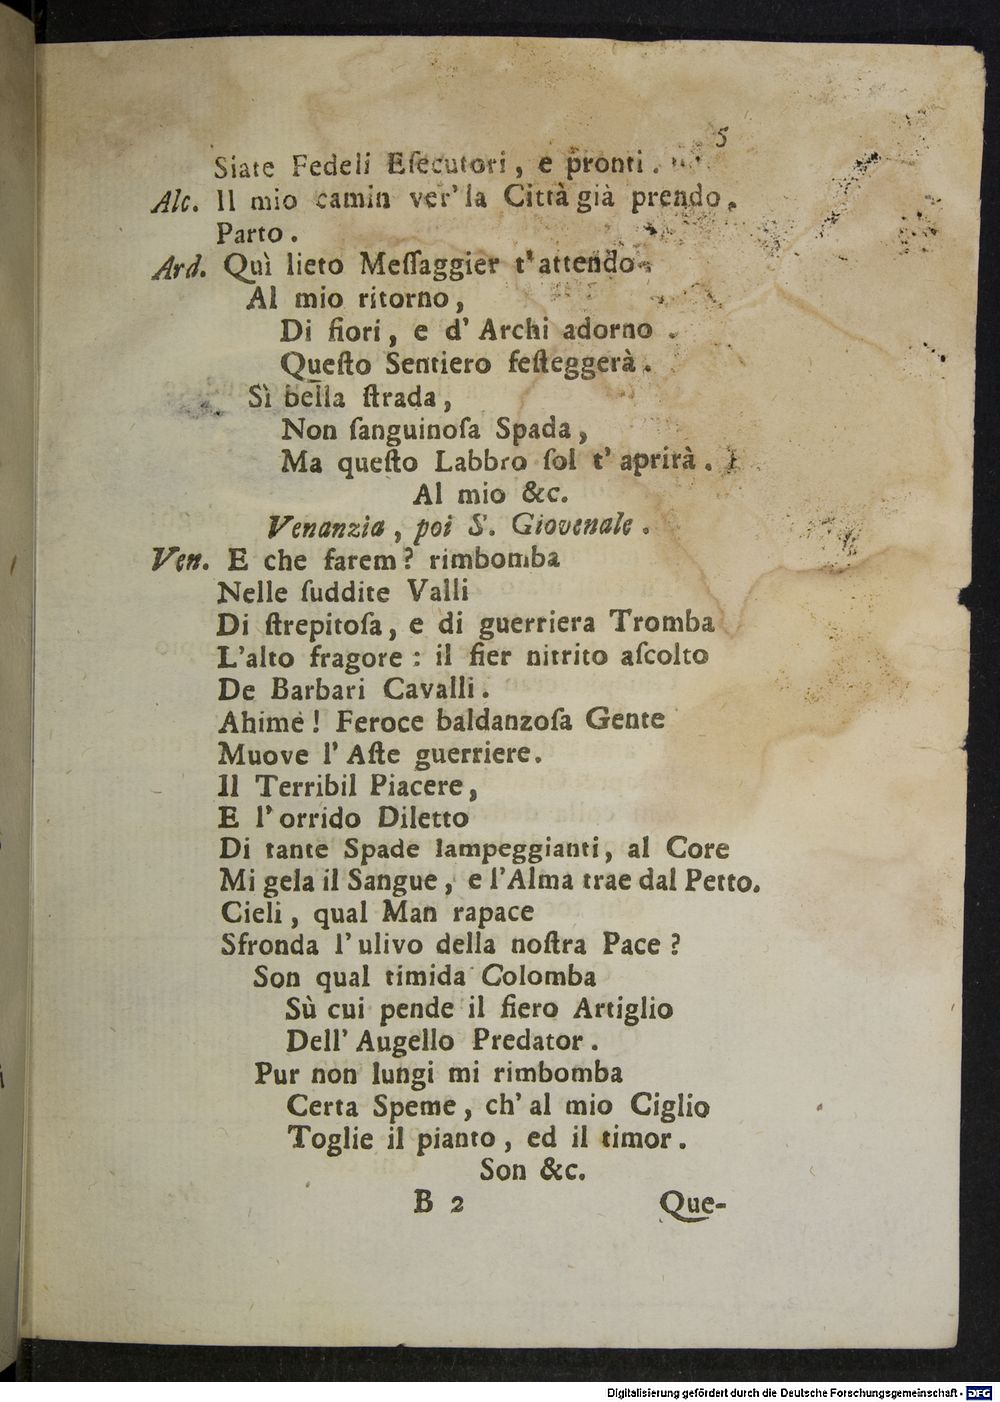 5
Siate Fedeli Eſecutori, e pronti.
Alc. Il mio camin ver' la Città già prendo.
Parto.
Ard. Quì lieto Meſſaggier t' attendo.
Al mio ritorno,
Di fiori, e d' Archi adorno.
Queſto Sentiero feſteggerà.
Sì bella ſtrada,
Non ſanguinoſa Spada,
Ma queſto Labbro ſol t' aprirà.
Al mio &c.
Venanzia, poi S. Giovenale.
Ven. E che farem? rimbomba
Nelle ſuddite Valli
Di ſtrepitoſa, e di guerriera Tromba
L'alto fragore: il fier nitrito aſcolto
De Barbari Cavalli.
Ahimè! Feroce baldanzoſa Gente
Muove l' Aſte guerriere.
Il Terribil Piacere,
E l' orrido Diletto
Di tante Spade lampeggianti, al Core
Mi gela il Sangue, e l'Alma trae dal Petto.
Cieli, qual Man rapace
Sfronda l' ulivo della noſtra Pace?
Son qual timida Colomba
Sù cui pende il fiero Artiglio
Dell' Augello Predator.
Pur non lungi mi rimbomba
Certa Speme, ch' al mio Ciglio
Toglie il pianto, ed il timor.
Son &c.
B 2 Que-
Digitalisierung gefördert durch die Deutsche Forschungsgemeinschaft - DFG